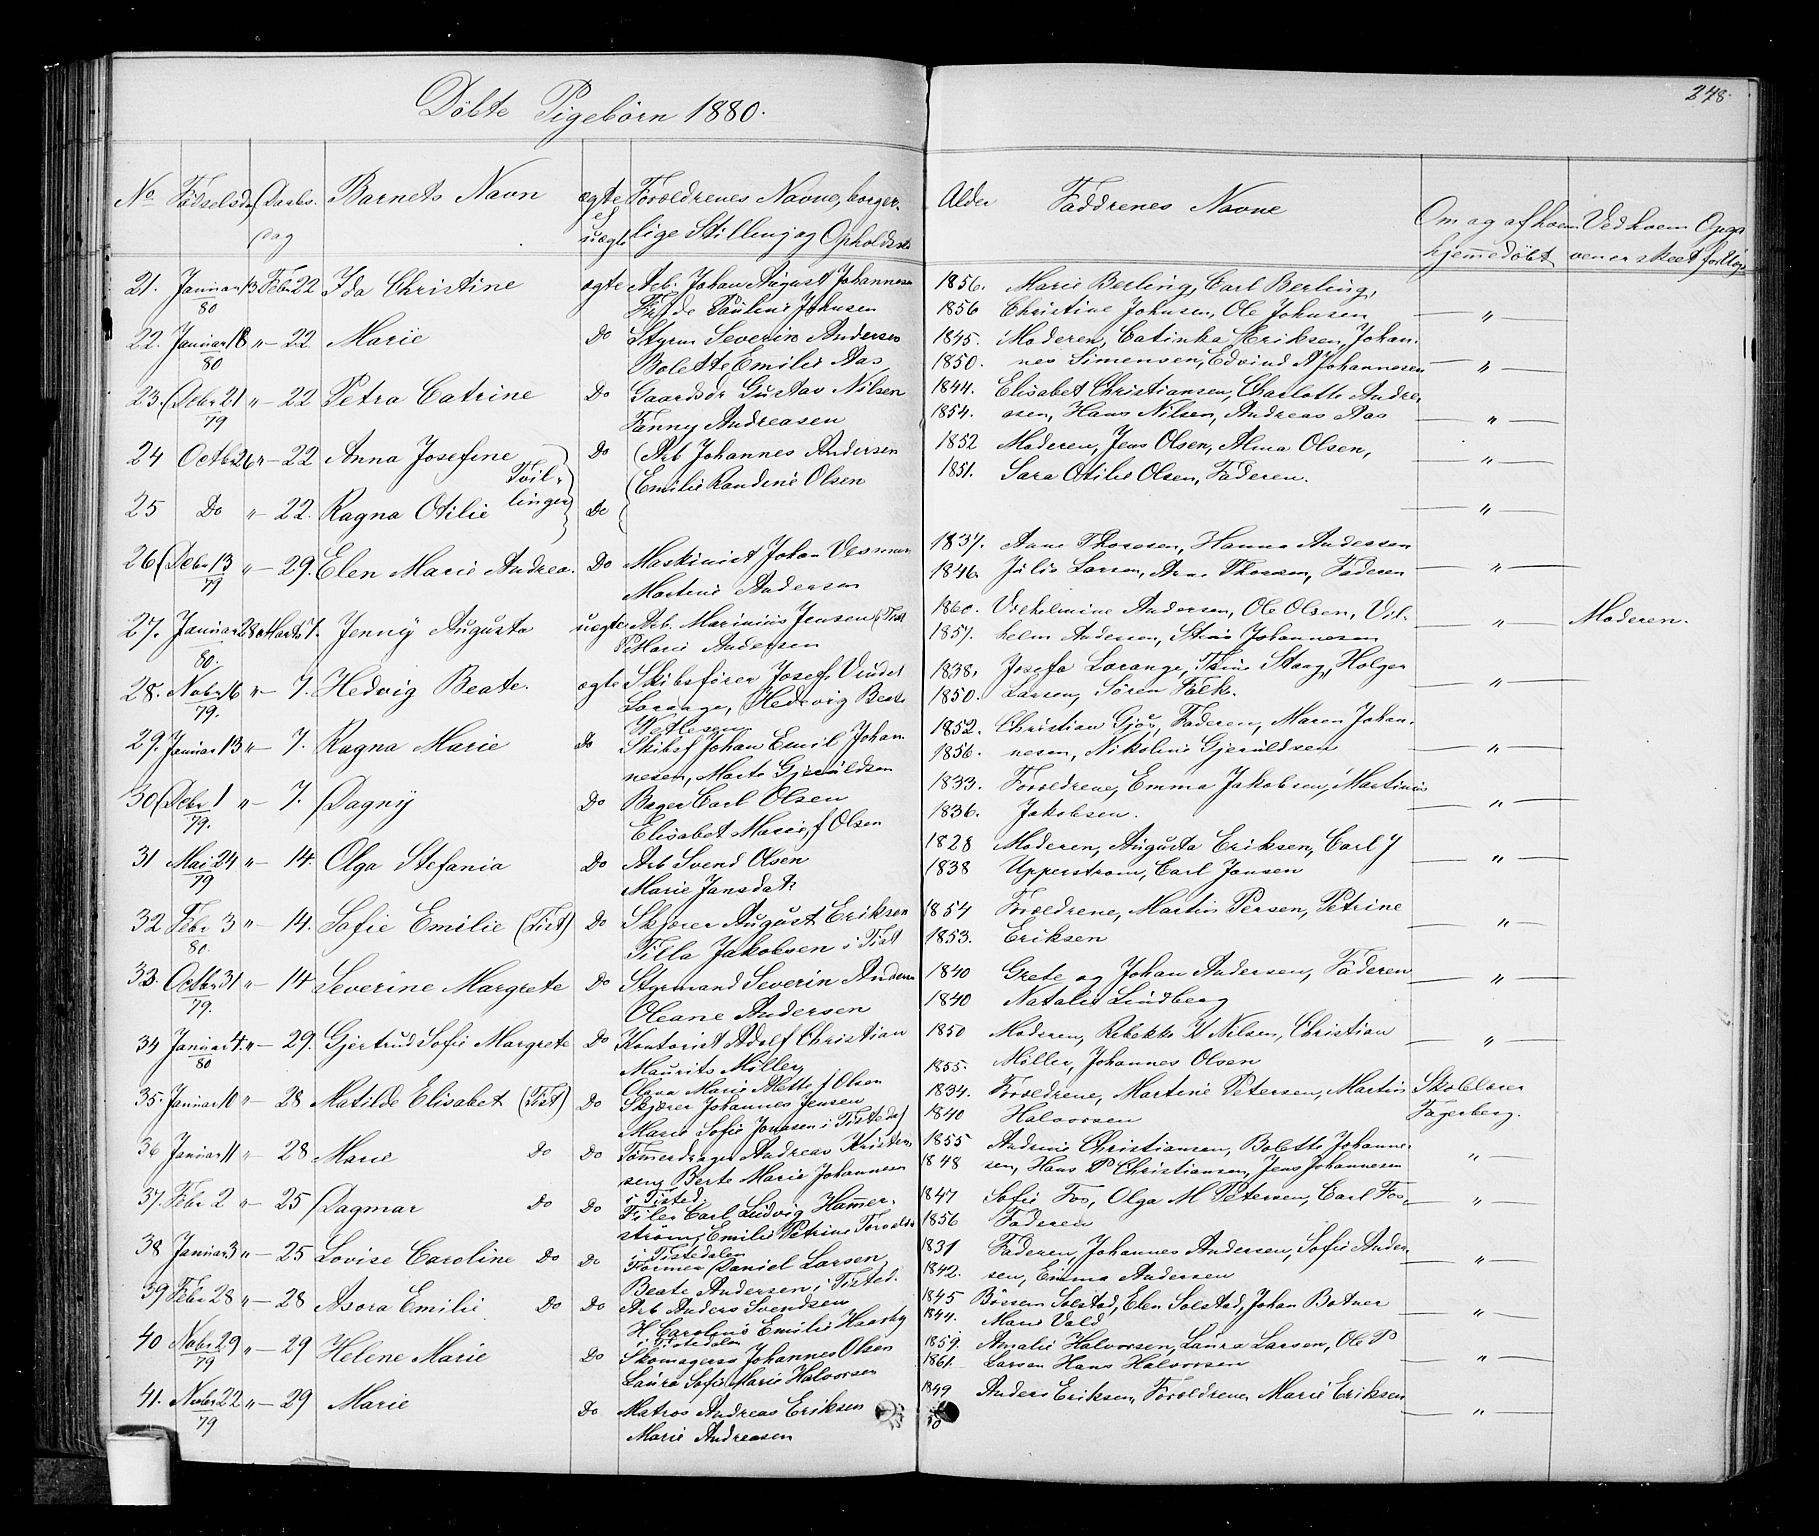 Døbte Pigebørn 1880.
248.
No Fødselsd. Daabs- Barnets Navn ægte Forældrenes Navne, borger- Alder Faddrenes Navne Om og af hvem Ved hvem Opgi-
dag uægte lige Stilling og Opholds hjemmedøbt ven er skeet
21. Januar 13 Febr 22 Ida Christine ægte Arb. Johan August Johannesen 1856. Marie Berling, Carl Berling,
80 Pauline Johnsen 1856 Christine Johnsen, Ole Johnsen — " —
22. Januar 18 "— 22 Marie Do Styrm Severin Andersen 1845. Moderen, Catinka Eriksen, Johan-
80 Bolette Emilie Aas 1850. nes Simensen, Edvind A Johannesen — " —
23 Debr 21 "— 22 Petra Catrine Do Gaardsbr Gustav Nilsen 1844. Elisabet Christiansen, Charlotte Andre-
79 Fanny Andreasen 1854. asen, Hans Nilsen, Andreas Aas — " —
24 Octbr 26 "— 22 Anna Josefine Do Arb Johannes Andersen 1852 Moderen, Jens Olsen, Alma Olsen,
Tvil- Emilie Randine Olsen 1851. Sara Otilie Olsen, Faderen. — " —
25 Do "— 22. Ragna Otilie linger Do — " —
26 Debr 13 "— 29. Elen Marie Andrea. Do Maskinist Johan 1837. Anne Thoresen, Hanna Andersen
79 Martine Andersen 1846. Julie Larsen, Arne Thoresen, Faderen — " —
27. Januar 28 Marts 7. Jenny Augusta uægte Arb. Marinius Jensen, Tist 1860. Vilhelmine Andersen, Ole Olsen, Vil-
80. P Marie Andersen 1857. helm Andersen, Stine Johannesen — " — Moderen.
28. Nobr 16 "— 7. Hedvig Beate. ægte Skibsfører Josef 1838. Josefa Lorange, Stang, Holger
79. Lorange, Hedevig Beate 1850. Larsen, Sören Falk. — " —
Wetlesen
29. Januar 13 "— 7. Ragna Marie Do Skibsf Johan Emil Johan- 1852. Christian Gjör, Faderen, Maren Johan-
nesen, Marte Gjeruldsen 1856. nesen, Nikoline Gjeruldsen — " —
30 Debr 1 "— 7. Dagny Do Bager Carl Olsen 1833. Forældrene, Emma Jakobsen, Martinius
79. Elisabet Marie, f Olsen 1836. Jakobsen. — " —
31 Mai 24 "— 14. Olga Stefania Do Arb Svend Olsen 1828 Moderen, Augusta Eriksen, Carl J
79 Marie Jansdatr 1838 Upperstrom, Carl Jansen — " —
32 Febr 3 "— 14. Sofie Emilie (Tist) Do Skjærer August Eriksen 1854 Forældrene, Martin Persen, Petrine
80. Tilla Jakobsen i Tist 1853. Eriksen — " —
33. Octbr 31 "— 14 Severine Margrete Do Styrmand Severin Andersen 1840 Grete og Johan Andersen, Faderen
79. Oleane Andersen 1840 Natalie Lindberg — " —
34 Januar 4. "— 29. Gjertrud Sofie Margrete Do Kontorist Adolf Christian 1850 Moderen, Rebekka Nilsen, Christian
80 Maurits Möller, 1855. Möller, Johannes Olsen — " —
Olava Marie Alette f Olsen
35. Januar 10 "— 28 Matilde Elisabet (Tist) Do Skjærer Johannes Jensen 1834. Forældrene, Martine Petersen, Martin Skolelærer
Marie Sofie Jonasen i Tistedal 1840 Halvorsen Fagerberg.
36 Januar 11 "— 28 Marie Do Do Tømmerdrager Andreas Kristen- 1855 Andrine Christiansen, Bolette Johanne-
sen, Berte Marie Johannesen 1848 sen, Hans P Christiansen, Jens Johannesen "
i Tisted.
37. Febr 2 "— 25 Dagmar Do Do Filer Carl Ludvig Hamer- 1847 Sofie Fos, Olga M Petersen, Carl Fos, — " —
strøm, Emilie Petrine 1856 Faderen
i Tistedalen
38 Januar 3 "— 25 Lovise Caroline Do Do Former Daniel Larsen, 1831 Faderen, Johannes Andersen, Sofie Ander-
Beate Andersen i Tisted. 1842. sen, Emma Andersen — " —
39 Febr 28 "— 28 Asora Emilie Do Do Arb Anders Svendsen 1845 Solstad, Elen Solstad, Johan Botner
H. Caroline Emilie 1844. Marie Vold — " —
i Tistedalen
40 Nobr 29 "— 29 Helene Marie Do Skomagersv Johannes Olsen 1859. Amalie Halvorsen, Laura Larsen, Ole P
79 Laura Sofie Marie Halvorsen 1861. Larsen Hans Halvorsen — " —
41. Nvbr 22 "— 29 Marie Do Matros Andreas Eriksen 1849 Anders Eriksen, Forældrene, Marie Eriksen
79 Marie Andreasen 50 — " —